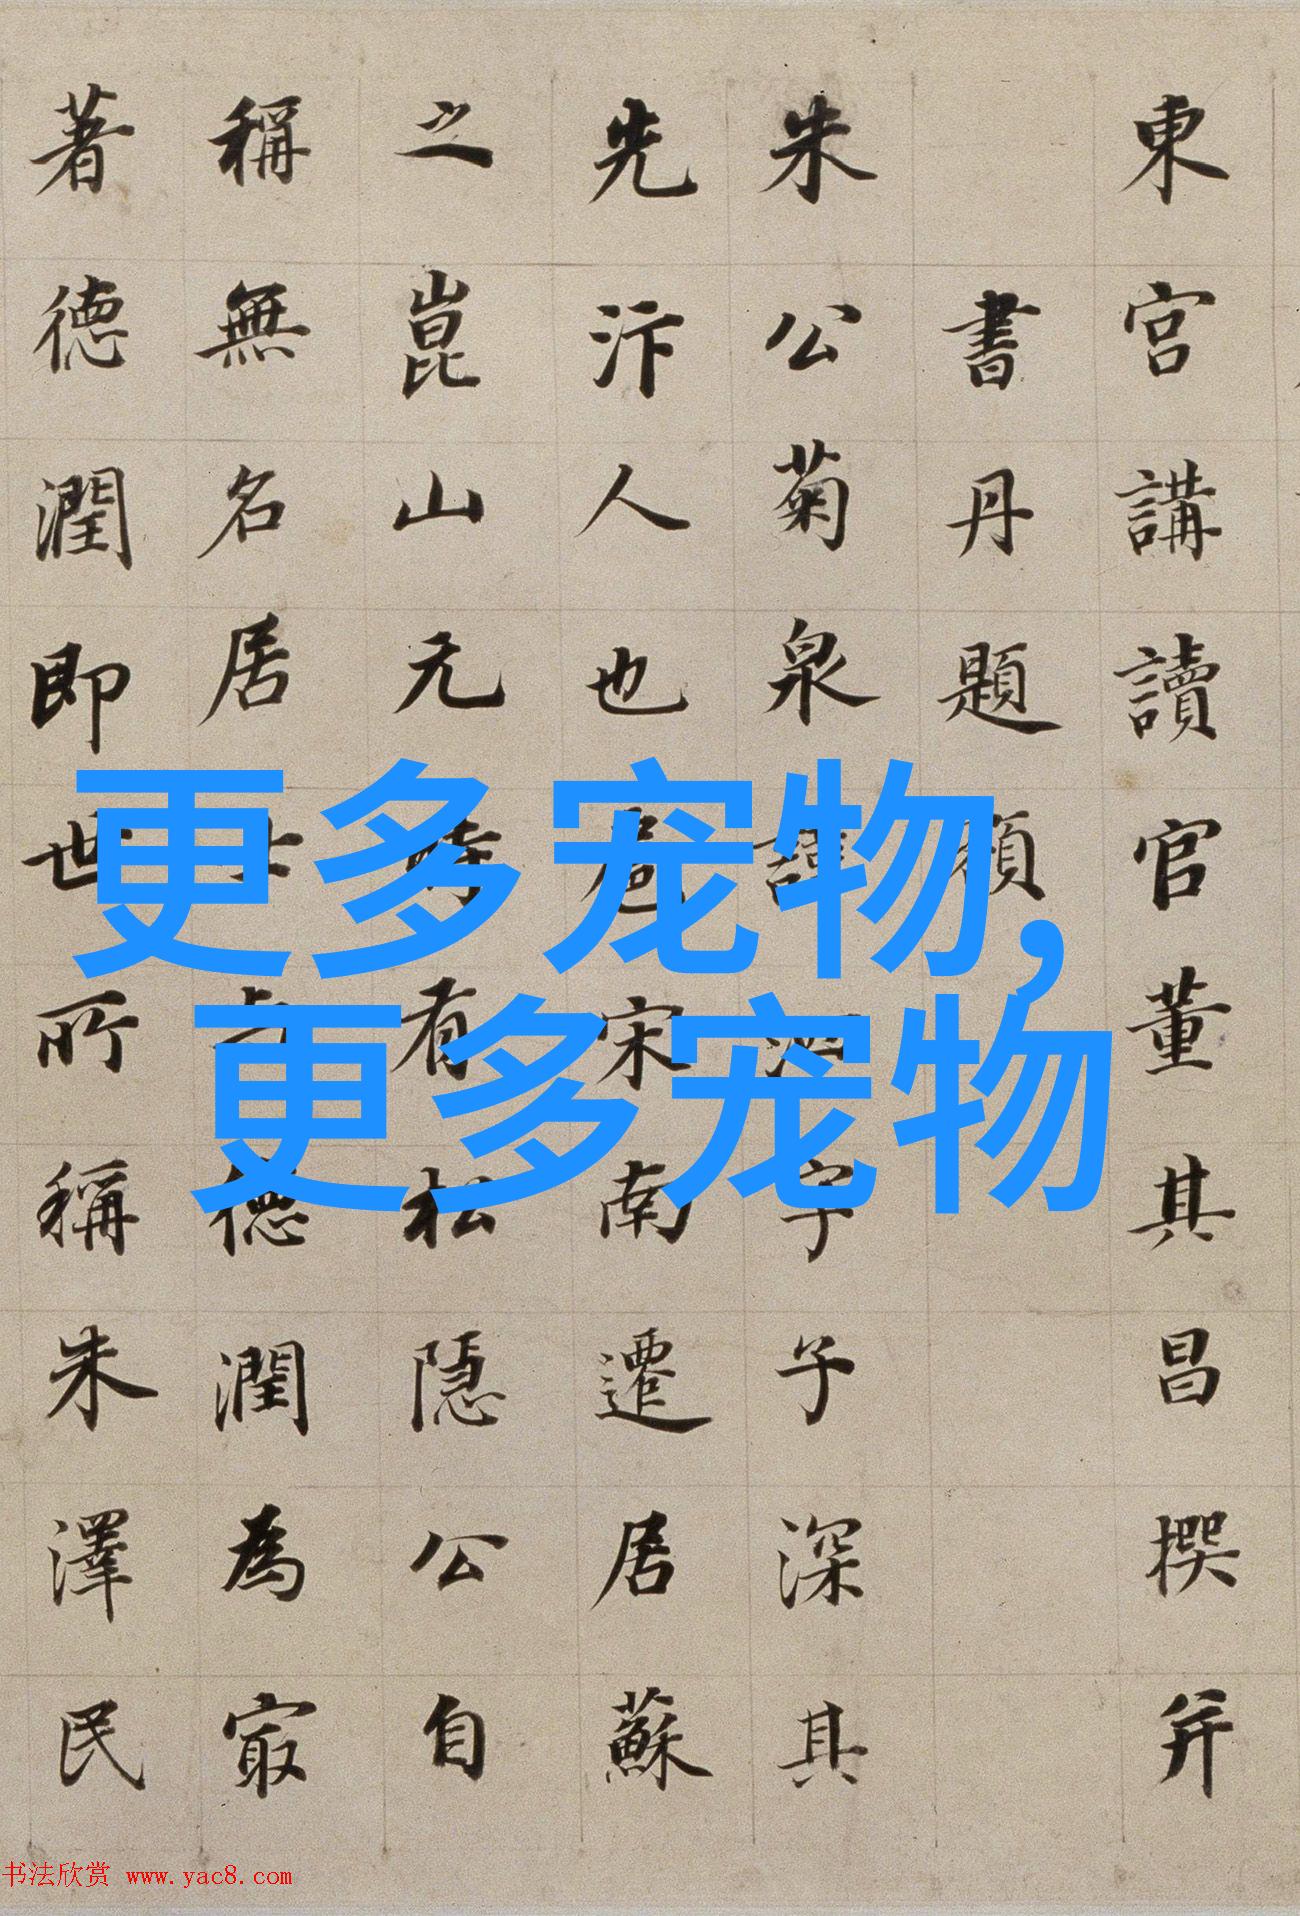 東宮講讀官董其昌撰并
書丹題額
朱公菊泉諱泗字子深其
先汴人也宋南遷居蘇
之崑山元時有松隱公自
稱無名居士与德潤為寂
著德潤即世所稱朱澤民
更多宠物,
更多宠物
书法欣赏 www.yac8.com